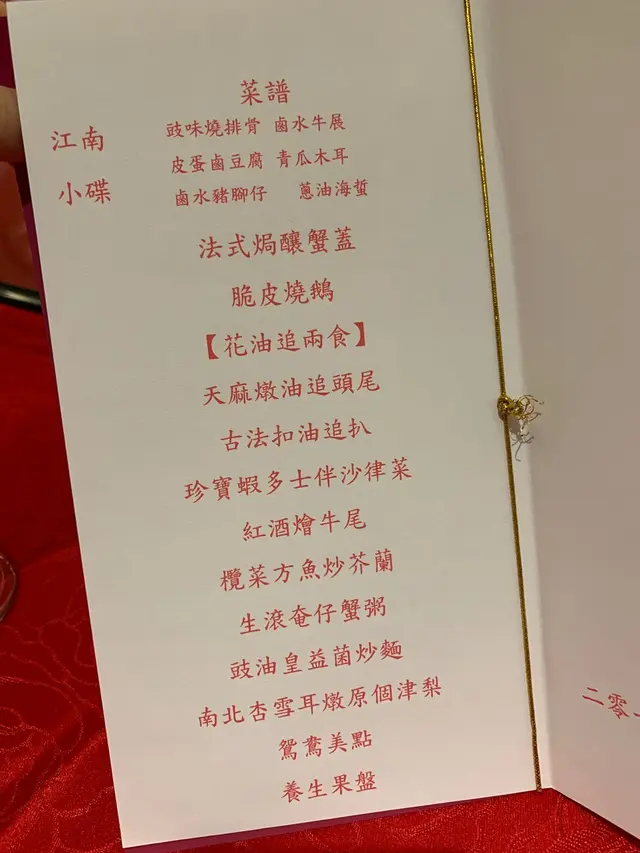 菜譜
江南
小碟
豉味燒排骨 鹵水牛展
皮蛋鹵豆腐 青瓜木耳
鹵水豬腳仔 蔥油海蜇
法式焗釀蟹蓋
脆皮燒鵝
【花油追兩食】
天麻燉油追頭尾
古法扣油追扒
珍寶蝦多士伴沙律菜
紅酒燴牛尾
欖菜方魚炒芥蘭
生滾奄仔蟹粥
豉油皇益菌炒麵
南北杏雪耳燉原個津梨
鴛鴦美點
養生果盤
二零